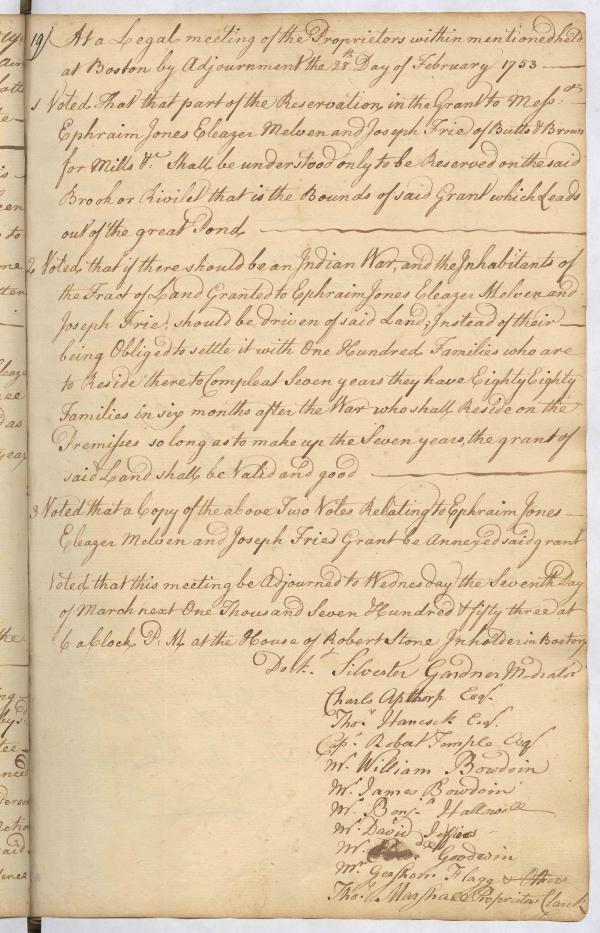 19) At a Legal meeting of the Proprietors within mentioned held
at Boston by Adjournment the 28th Day of February 1753
1 Voted That that part of the Reservation in the Grant to Messrs
Ephraim Jones Eleazer Melven and Joseph Frie of Butts & Brows
for Mills &c Shall be understood only to be Reserved on the said
Brook or Rivilet that is the Bounds of said Grant which Leads
out of the great Pond
2 Voted that if there should be an Indian War, and the Inhabitants of
the Tract of Land Granted to Ephraim Jones Eleazer Melven and
Joseph Frie, should be driven of said Land; Instead of their
being Obliged to settle it with One Hundred Families who are
to Reside there to Compleat Seven years they have Eighty Eighty
Families in six months after the War who shall Reside on the
Premisses so long as to make up the Seven years, the grant of
said Land shall be Valid and good
3 Voted that a Copy of the above Two Votes Relating to Ephraim Jones
Eleazer Melven and Joseph Fries Grant be Annexed said grant
Voted that this meeting be Adjourned to Wednesday the Seventh Day
of March next One Thousand Seven Hundred & fifty three at
6 a Clock P. M. at the House of Robert Stone Inholder in Boston
Doct. Silvester Gardner Modrator
Charls Apthorp Esqr.
Thos. Hancock Esq.
Capt. Robert Temple Esqr
Mr. William Bowdoin
Mr. James Bowdoin
Mr. Benj.a Hallowell
Mr. David Jeffries
Mr. Goodwin
Mr. Gershom Flagg & others
Thos. Marshall Proprietors Clerk